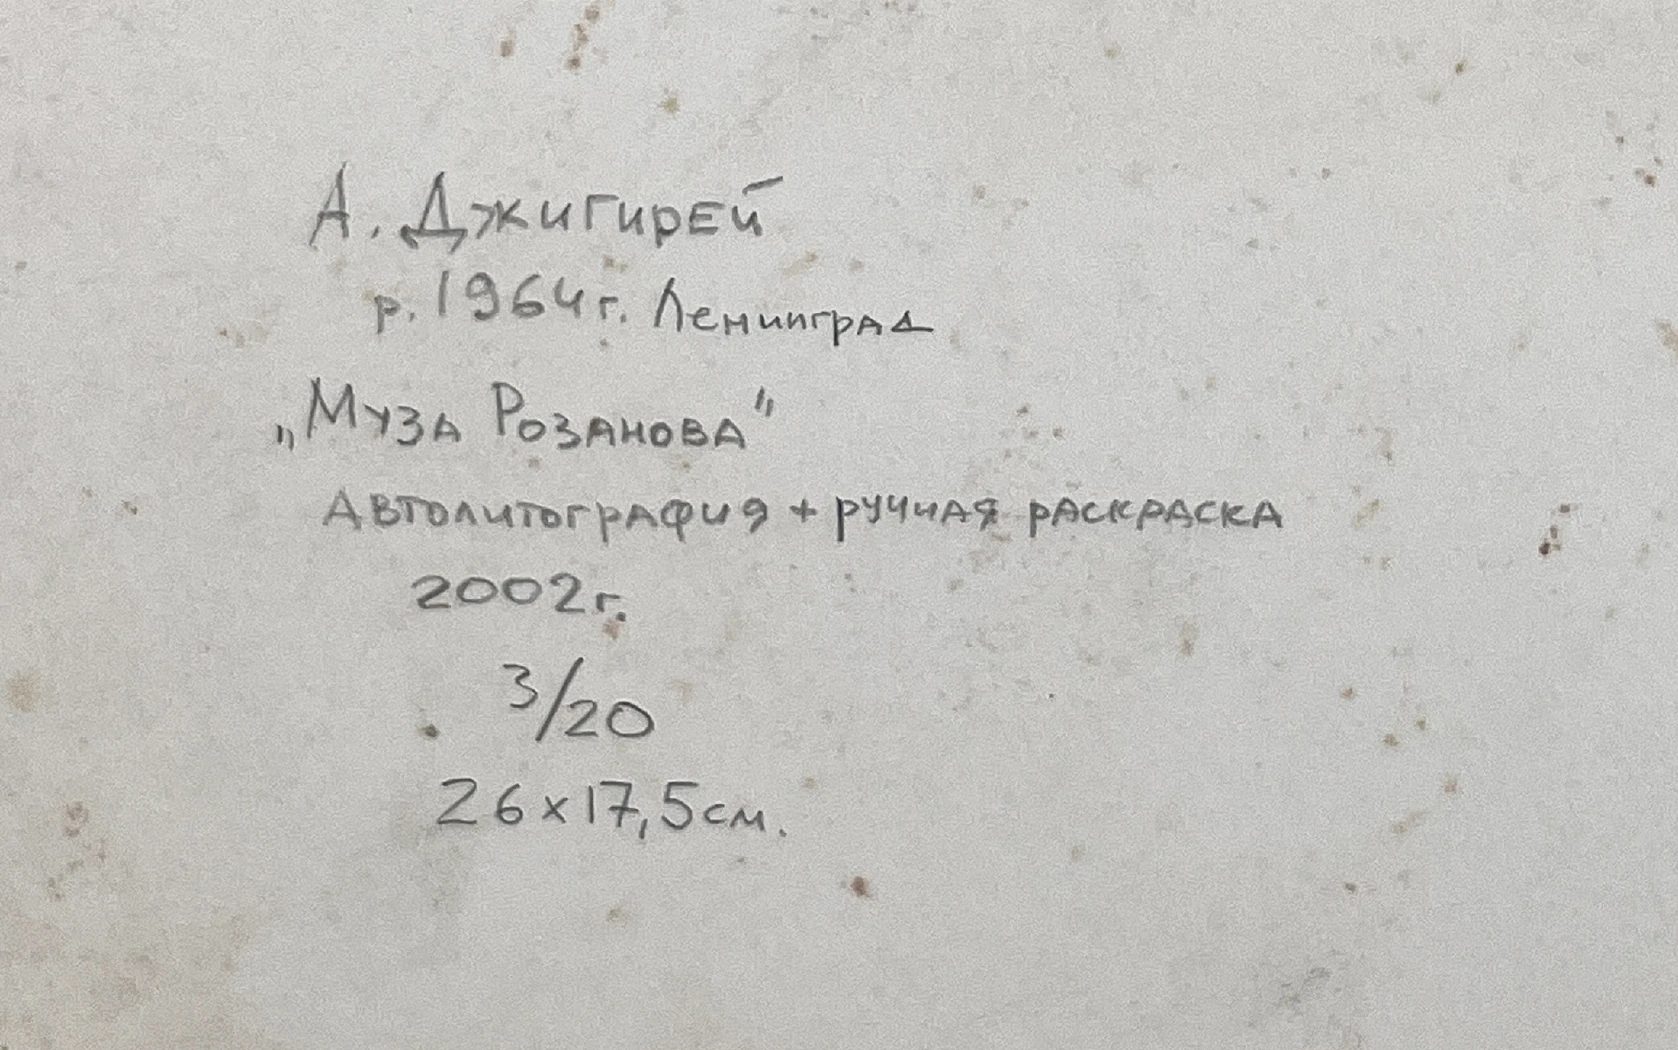 А. Джигирей
р. 1964г. Ленинград
„Муза Розанова"
Автолитография + ручная раскраска
2002г.
3/20
26x17,5см.